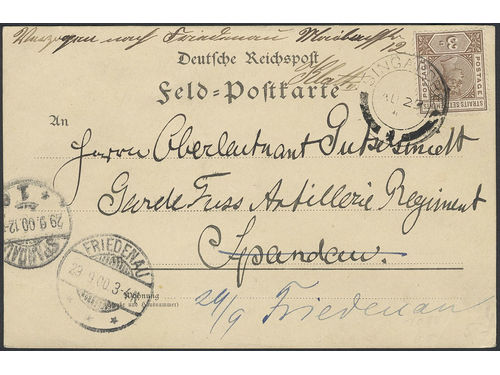 Verzogen nach Friedenau Maibachstr
12
Deutsche Reichspost
Feld=Postkarte
An
Herrn Oberleutnant Gutschmidt
Garde Fuss Artillerie Regiment
Spandau.
29/9 Friedenau
Wohnung
(Straße und Hausnummer)
STRAITS SETTLEMENTS
POSTAGE
POSTAGE
3
SINGA
AU 29
SPANDAU
1
29.9.00.12-
FRIEDENAU
29.9.00 3-4